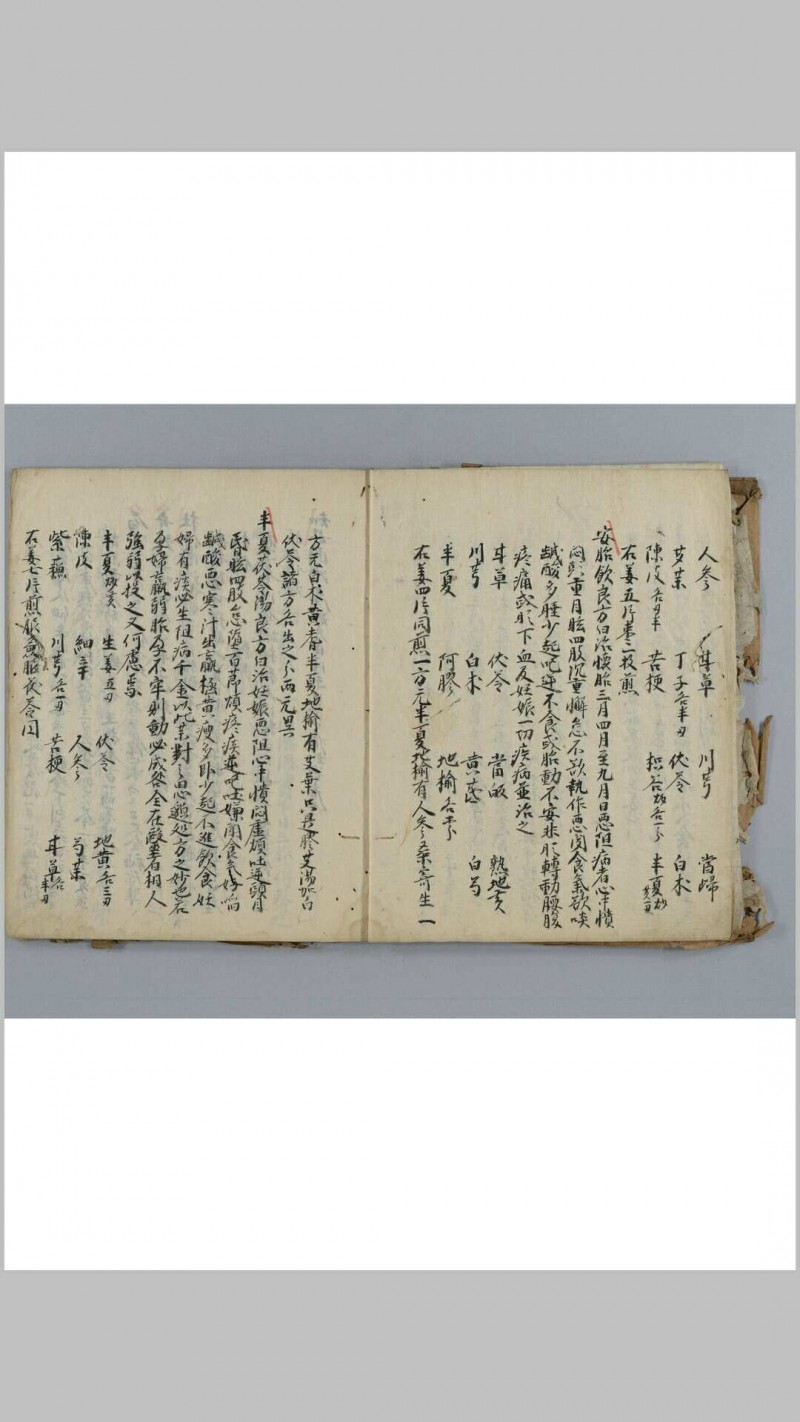 人参 甘草 川芎 當歸
芍藥 丁子各半刄 伏苓 白朮
陳皮各刄半 苦梗 枳壳 各二分 半夏
右姜五片枣二枚煎
安胎飲良方曰治懐胎三月四月至九月日悪阻病者心中憒
悶頭重目眩四肢沉重懈怠不欲執作悪闻食氣欲啖
鹹酸多睡少起呕逆不食或胎動不安非时轉動腰腹
疼痛或时下血及妊娠一切疾病並治之
甘草 伏苓 當皈 熟地黄
川芎 白朮 黄芪 白芍
半夏 阿膠 地榆各子分
右姜四片同煎一方无半夏地榆有人参桑寄生一
方无白朮黄芪半夏地榆有艾葉只是膠艾湯加白
伏苓諸方各出之分两元異
半夏茯苓湯良方曰治妊娠悪阻心中憒悶虚煩吐逆頭目
昏眩四肢怠堕百節煩疼痰逆呕吐嫌闻食氣好啗
鹹酸悪寒汗出羸極黄瘦多卧少起不進飲食妊
婦有痰必生阻病千金以此葉對之悪 處方之妙也若
孕婦羸弱胎孕不牢 動必成咎全在醫者相人
強弱以投之又何慮焉
半夏 生姜五刄 伏苓 地黄各三刄
陳皮 細辛 人参 芍薬
紫蘇 川芎各一刄 苦梗 甘草各半刄
右姜七片煎服 服茯苓円